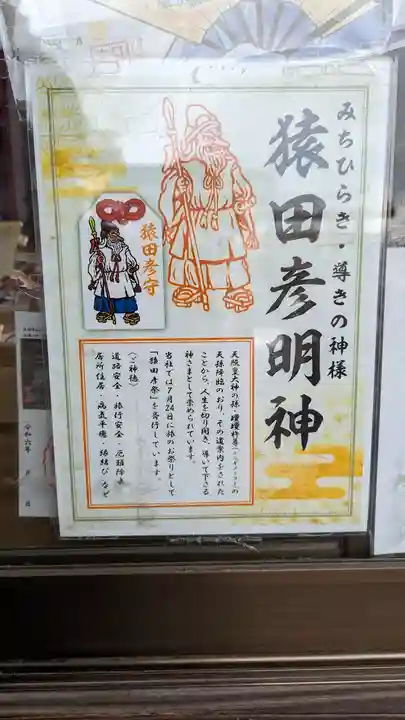 みちひらき・導きの神様
猿田彦明神
猿田彦守
天照皇大神の孫・瓊瓊杵尊(ににぎのみこと)の
天孫降臨のおり、その道案内をされた
ことから、人生を切り開き、導いて下さる
神さまとして崇められています。
当社では7月24日に旅のお祭りとして
「猿田彦祭」を斎行しています。
〈ご神徳〉
道路安全・旅行安全・厄難除け
居所住居・病気平癒・縁結び など
令和六年 月 日